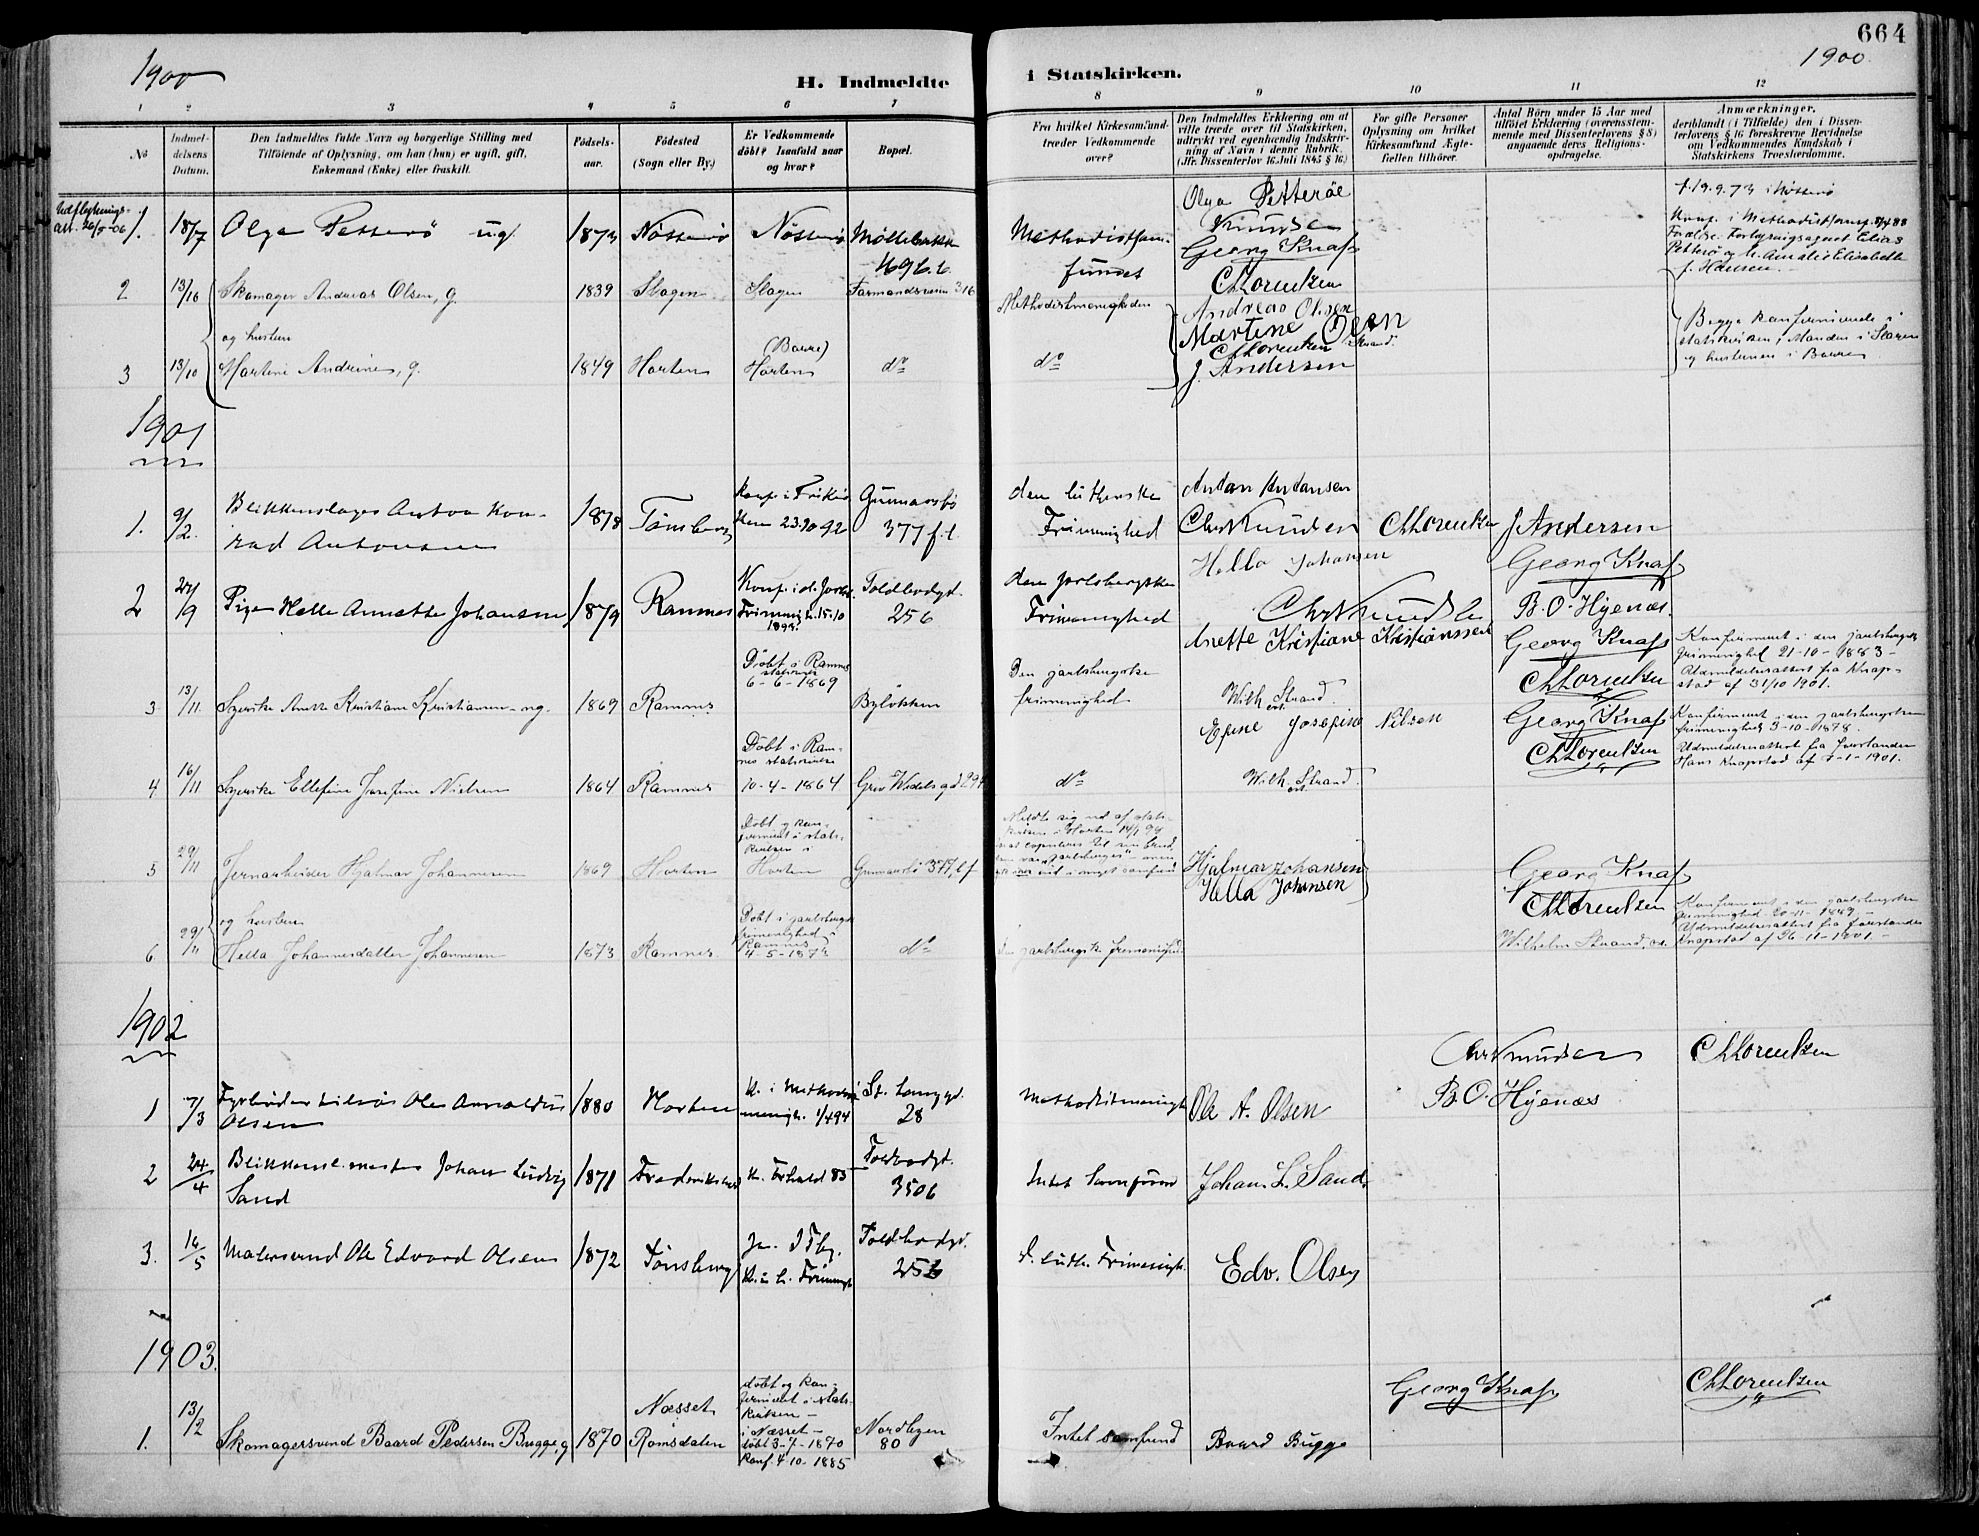 664
1900
1900
H. Indmeldte i Statskirken.
1 2 3 4 5 6 7 8 9 10 11 12
No
Indmel-
delsens
Datum.
Den Indmeldtes fulde Navn og borgerlige Stilling med
Tilföiende af Oplysning, om han (hun) er ugift, gift,
Enkemand (Enke) eller fraskilt.
Födsels-
aar.
Födested
(Sogn eller By.)
Er Vedkommende
döbt? Isaafald naar
og hvor?
Bopæl.
Fra hvilket Kirkesamfund
træder Vedkommende
over?
Den Indmeldtes Erklæring om at
ville træde over til Statskirken,
udtrykt ved egenhændig Indskriv-
ning af Navn i denne Rubrik.
(Jfr. Dissenterlov 16 Juli 1845 § 16)
For gifte Personer
Oplysning om hvilket
Kirkesamfund Ægte-
fællen tilhörer.
Antal Börn under 15 Aar med
tilföiet Erklæring (overensstem-
mende med Dissenterlovens § 8)
angaaende deres Religions-
opdragelse.
Anmærkninger,
deriblandt (i Tilfælde) den i Dissen-
terlovens § 16 foreskrevne Bevidnelse
om Vedkommendes Kundskab i
Statskirkens Troeslærdomme.
Udflytnings-
att. 26/5-06
1. 18/7 Olga Petterö ug. 1873 Nötterö Nötterö Möllebakken
496 b.
Methodistsam-
fundet
Olga Petteröe
Knudsen
Georg Knaf
C Lorentzen
f. 19.9.73 i Nötterö
Konf. i Methodistsamf.
Petterö og h. Amalie Elisabeth
f. Hansen.
2 13/10 Skomager Andreas Olsen, g. 1839 Slagen Slagen Farmandsveien 316
Methodistmenigheden
Andreas Olsen
Martine Olsen
C Lorentzen
Strand.
J. Andersen
Begge konfirmerede i
statskirken, Manden i Slagen
og hustruen i Borre
og hustru
3 13/10 Martine Andrine, g. 1849 Horten (Borre)
Horten do do
1901
1. 9/2. Blikkenslager Anton Kon-
rad Antonsen 1878 Tönsberg konf. i Frikir
ken 23.10 92 Gunnarsbö
377 f.t.
den lutherske
Frimenighed
Anton Antonsen
Chr Knudsen C Lorentzen J Andersen
2 24/9 Pige Helle Annette Johansen 1879 Ramnes Konf. i d. Jarlsb.
Frimenigh. 15-10
1893. Toldbodgt.
256
den jarlsbergske
Frimenighed
Hella Johansen
Chr Knudsen
Georg Knaf
B. O. Hyenæs.
3 13/11 Syerske Anette Kristiane Kristiansen - ug. 1869 Ramnes Döbt i Ramnes
statskirke
6 - 6 - 1869 Bylökken
Den jarlsbergske
frimenighed
Anette Kristiane Kristianssen
Wilh. Strand.
Georg Knaf
C Lorentzen
Konfirmeret i den jarlsbergske
frimenighed 21-10-1883 -
Udmeldelsesattest fra Knap-
stad af 31/10 1901.
4 16/11 Syerske Ellefine Josefine Nielsen 1864 Ramnes Döbt i Ram-
nes statskirke
10-4-1864 Grev Wedels gd
do
Josefine Nilsen
Wilh. Strand.
Georg Knaf
C Lorentzen
Konfirmeret i den jarlsbergske
frimenighed 3-10-1878.
Udmeldelsesattest fra forstander
Hans Knapstad af 7-1-1901.
5 29/11 Jernarbeider Hjalmar Johannesen 1869 Horten Döbt og kon-
firmeret i stats-
kirken i
Horten Gunnarsbö 377, l f
Meldte sig ud af stats-
kirken i Horten 14/1 99
Hjalmar Johansen
Hella Johansen
Georg Knaf
C Lorentzen
Wilhelm Strand,
og hustru
6 29/11 Hella Johannesdatter Johannesen 1873 Ramnes Döbt i jarlsbergske
frimenighed i
Ramnes
4-5-1873 do
den jarlsbergske frimenighed
Konfirmeret i den jarlsbergske
frimenighed 20-11-1889 -
Udmeldelsesattest fra forstander
Knapstad af 26-11-1901.
1902
Chr Knudsen C Lorentzen
B O. Hyenæs
1 7/3 Fyrböder Ole Arnoldus
Olsen 1880 Horten K. i Methodist
menigh. 1/4 94 St. Langgd.
28
Methodistmenigh Ole A. Olsen
2 24/4 Blikkensl.mester Johan Ludvig
Sand 1871 Frederikshald K. Frhald 85 Toldbodgt.
350 b
Intet Samfund Johan L. Sand.
3. 16/5 Malersvend Ole Edvard Olsen 1872 Tönsberg Ja. I Tbg.
K. i L. Frimenigh Toldbodgd.
256
d. luth. Frimenigh. Edv. Olsen
1903.
Georg Knaf C Lorentzen
1. 13/2 Skomagersvend Baard Pedersen Bugge, g 1870 Næsset
Romsdalen döbt og kon-
firmeret i stats-
kirken -
i Næsset -
döbt 3-7-1870
Konf. 4-10-1885 Nordbyen
80
Intet samfund Baard Bugge